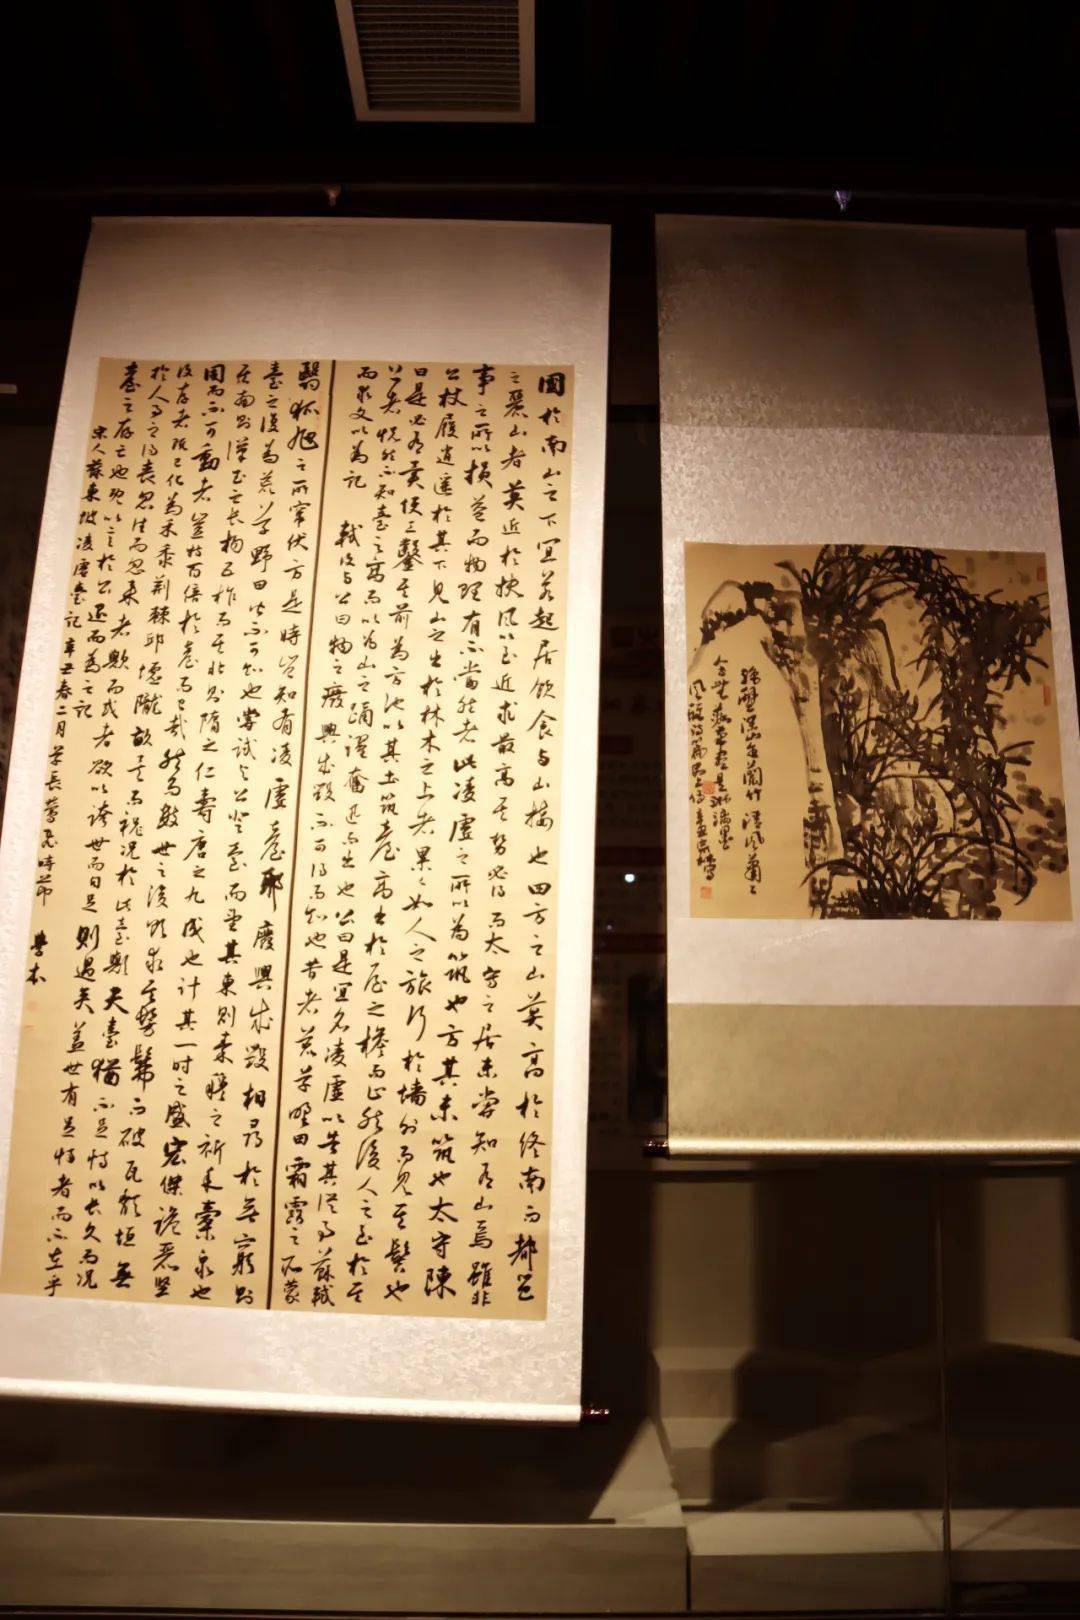 國於南山之下宜若起居飲食與山接也四方之山莫高於終南而都邑
之麗山者莫近於扶風以至近求最高其勢必得而太守之居未嘗知有山焉雖非
事之所以損益而物理有不當然者此凌虛之所以為築也方其未築也太守陳
公杖履逍遙於其下見山之出於林木之上者累々如人之旅行於墻外而見其髻也
曰是必有異使工鑿其前為方池以其土築臺高出於屋之檐而止然後人之至於其
上者恍然不知臺之高而以為山之踊躍奮迅而出也公曰是宜名凌虛以告其從事蘇軾
而求文以為記 軾復與公曰物之廢興成毀不可得而知也昔者荒草野田霜露之所蒙
翳狐虺之所竄伏方是時豈知有凌虛臺耶廢興成毀相尋於無窮則
臺之復為荒草野田皆不可知也嘗試與公登臺而望其東則秦穆之祈年橐泉也
其南則漢武之長楊五柞而其北則隋之仁壽唐之九成也計其一時之盛宏傑詭麗堅
固而不可動者豈特百倍於臺而已哉然而數世之後欲求其髣髴而破瓦頹垣無
復存者既已化為禾黍荊棘邱墟隴畝矣而況於此臺歟夫臺猶不足恃以長久而況
於人事之得喪忽往而忽來者歟而或者欲以誇世而自足則過矣蓋世有足恃者而不在乎
臺之存亡也既以言於公還而為之記
宋人蘇東坡凌虛臺記辛丑春二月草長鶯飛時節 學本
深山有蘭竹清風蕭